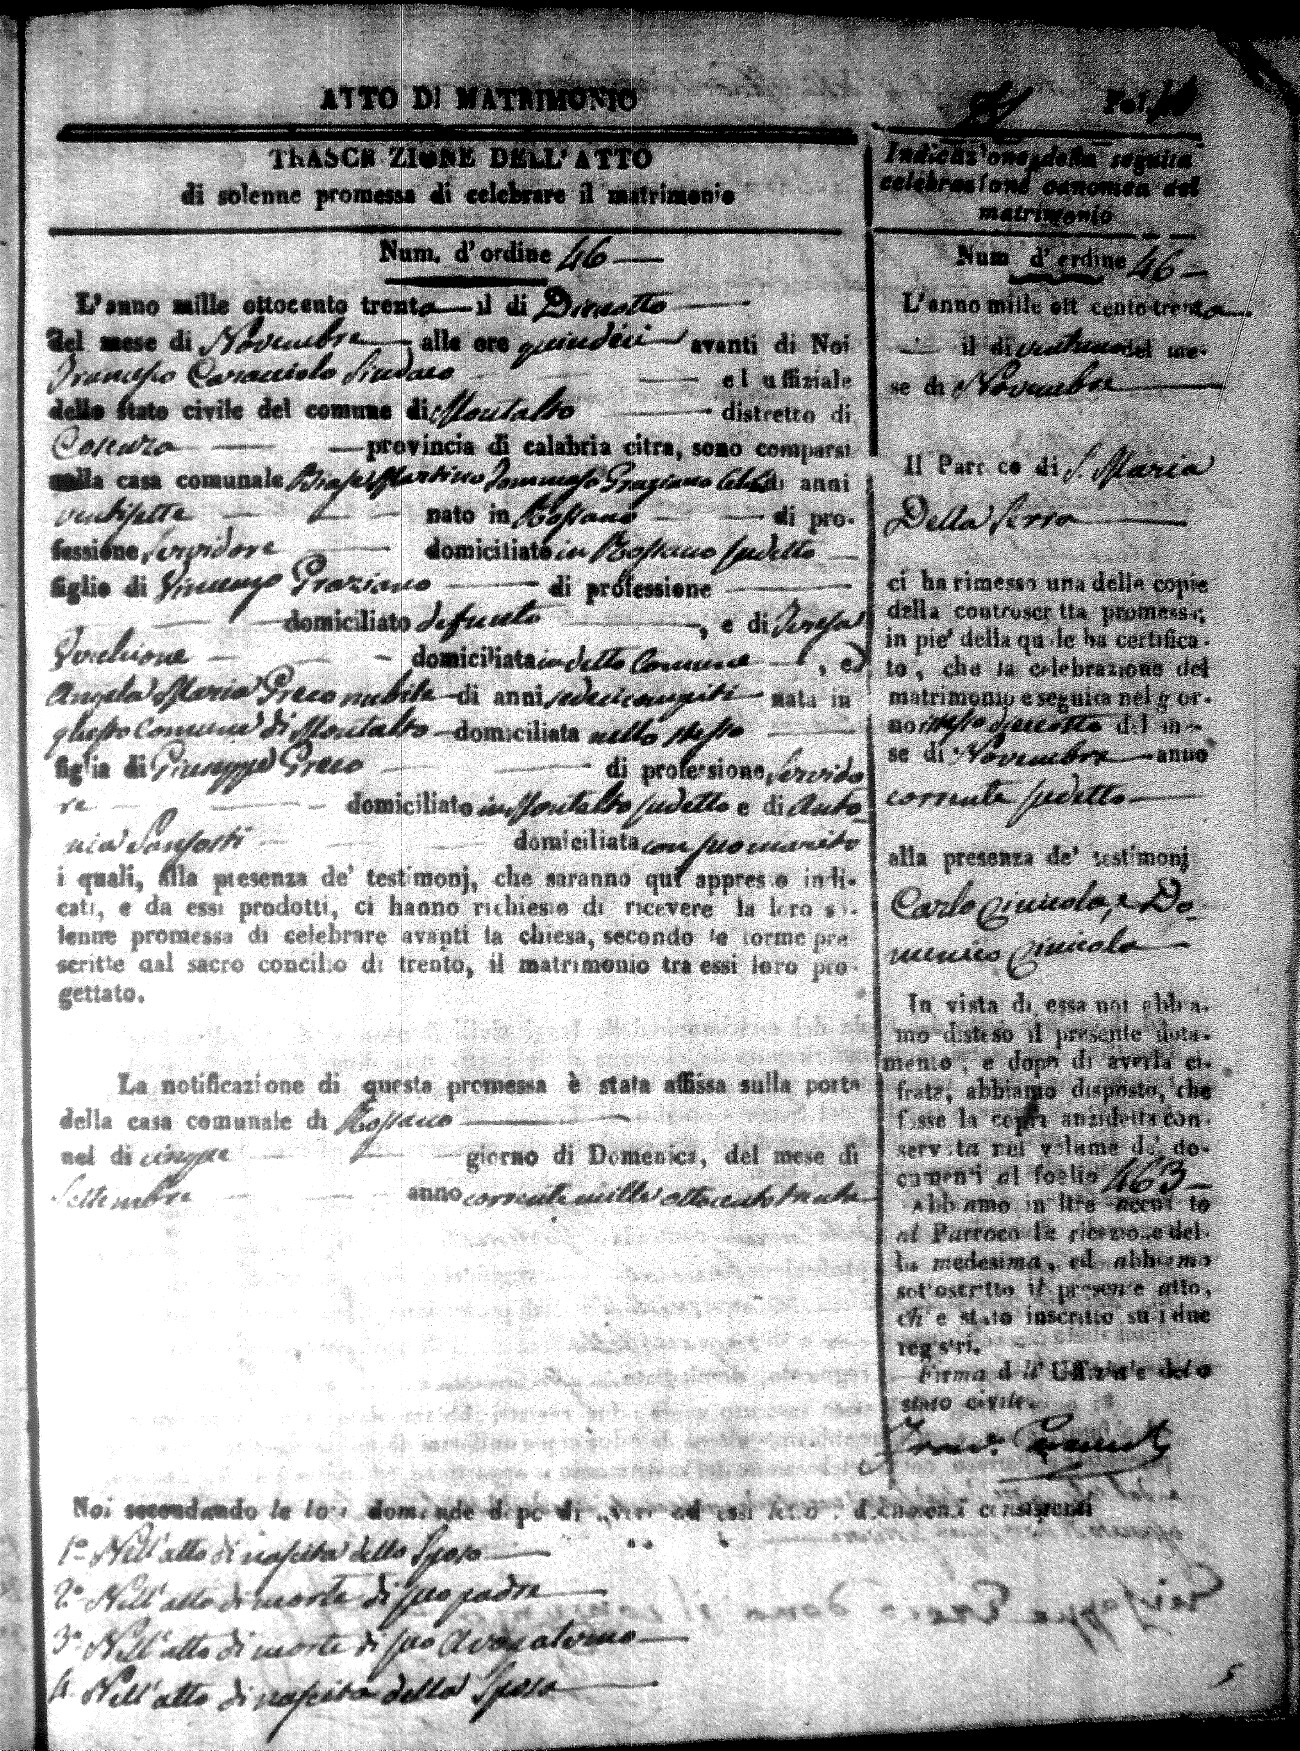 ATTO DI MATRIMONIO
Fol.
TRASCRIZIONE DELL'ATTO
di solenne promessa di celebrare il matrimonio
Num. d'ordine 46
L'anno mille ottocento trenta il di Dieciotto
del mese di Novembre alle ore quindici avanti di Noi
Francesco Caracciolo Sindaco ed uffiziale
dello stato civile del comune di Montalto distretto di
Cosenza provincia di calabria citra, sono comparsi
nella casa comunale Biase Martino Tommaso Graziano di anni
ventisette nato in Rossano di pro-
fessione Servidore domiciliato in Rossano sudetto
figlio di Vincenzo Graziano di professione
domiciliato defunto , e di Teresa
domiciliata in detto Comune , e
Angela Maria Greco nubile di anni sedici compiti nata in
questo Comune di Montalto domiciliata nello stesso
figlia di Giuseppe Greco di professione Servido
re domiciliato in Montalto sudetto e di Anto-
nia domiciliata con suo marito
i quali, alla presenza de' testimonj, che saranno qui appresso indi-
cati, e da essi prodotti, ci hanno richiesto di ricevere la loro so-
lenne promessa di celebrare avanti la chiesa, secondo le forme pre-
scritte dal sacro concilio di trento, il matrimonio tra essi loro pro-
gettato.
La notificazione di questa promessa è stata affissa sulla porta
della casa comunale di Rossano
nel di cinque giorno di Domenica, del mese di
Settembre anno corrente mille ottocento trenta
Noi secondando le loro domande dopo di aver ad essi letto i documenti consistenti
1.° Nell'atto di nascita dello Sposo
2.° Nell'atto di morte di suo padre
3.° Nell'atto di morte di suo Avo paterno
4. Nell'atto di nascita della Sposa
Indicazione della seguita
celebrazione canonica del
matrimonio
Num. d'ordine 46
L'anno mille ottocento trenta
il di ventuno del me-
se di Novembre
Il Parroco di S. Maria
Della Serra
ci ha rimesso una delle copie
della controscritta promessa;
in pie' della quale ha certifica-
to, che la celebrazione del
matrimonio è seguita nel gior-
no stesso dieciotto del me-
se di Novembre anno
corrente sudetto
alla presenza de' testimonj
Carlo, e Do-
menico
In vista di essa noi abbia-
mo disteso il presente nota-
mento, e dopo di averla ci-
frata, abbiamo disposto, che
fosse la copia anzidetta con-
servata nel volume de' do-
cumenti al foglio 463
Abbiamo inoltre accusato
al Parroco la ricezione del-
la medesima, ed abbiamo
sottoscritto il presente atto,
ch'è stato inscritto su i due
registri.
Firma dell'Uffiziale dello
stato civile.